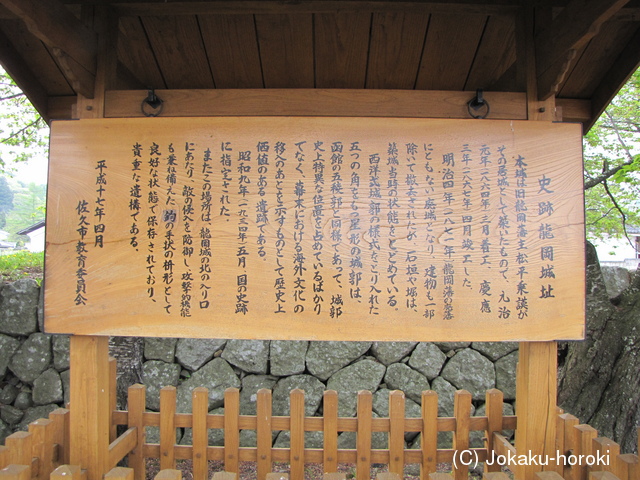 史跡龍岡城址
本城は旧龍岡藩主松平乗謨が
その居城として築いたもので、元治
元年(一八六四年)三月着工、慶應
三年(一八六七年)四月竣工した。
明治四年(一八七一年)龍岡藩の廃藩
にともない廃城となり、建物も一部
除いて毀された
石垣や堀は、
築城当時の状態をとどめている。
西洋式城郭の様式をとり入れた
五つの角をもつ星形の城郭は、
函館の五稜郭と同様であって、城郭
史上特異な位置を占めているばかり
でなく、幕末における海外文化の
移入のあとを示すものとして歴史上
価値のある遺跡である。
昭和九年(一九三四年)五月、国の史跡
に指定された。
またこの場所は、龍岡城の北の入り口
にあたり、敵の侵入を防御し、攻撃的機能
も兼ね備えた、鈎の手状の枡形として
良好な状態で保存されており、
貴重な遺構である。
平成十七年四月
佐久市教育委員会
(C)Jokaku-horoki